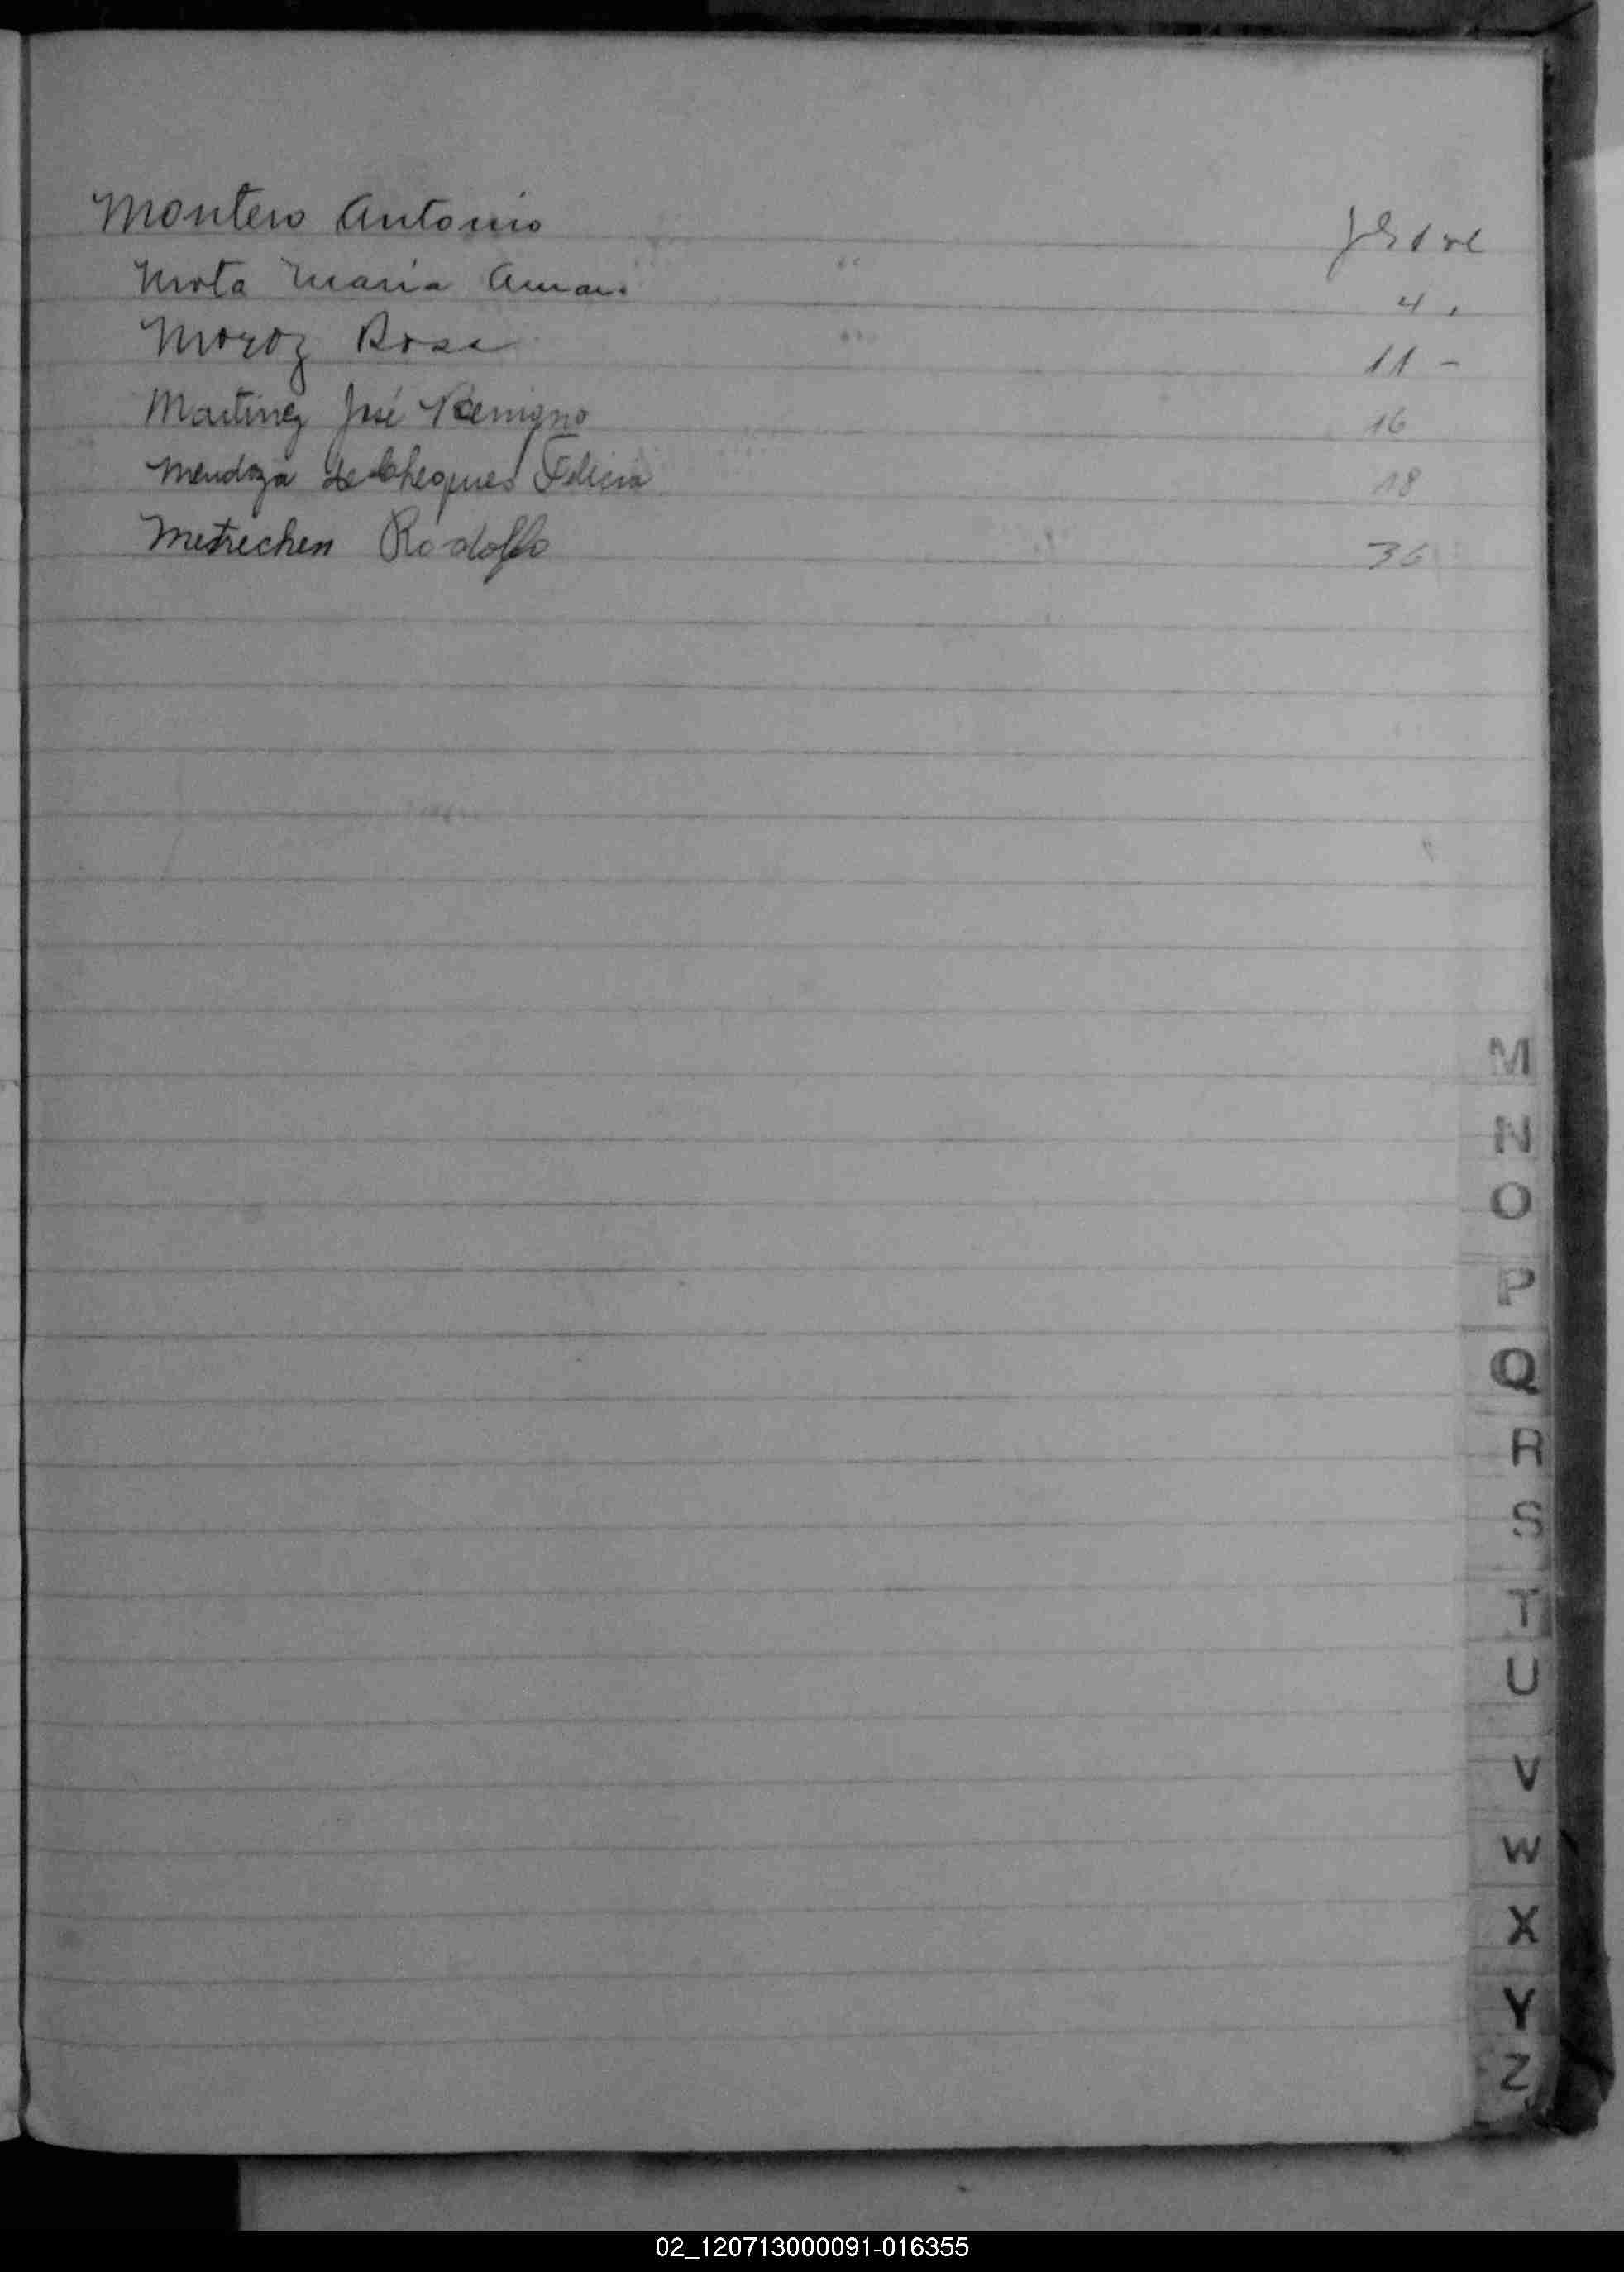 Montero Antonio
Mota Maria 4
Moroz Rosa 11 -
Martinez José Benigno 16
Mendoza de Cheques Felicia 18
Metrechen Rodolfo 36
M
N
O
P
Q
R
S
T
U
V
W
X
Y
Z
02_120713000091-016355